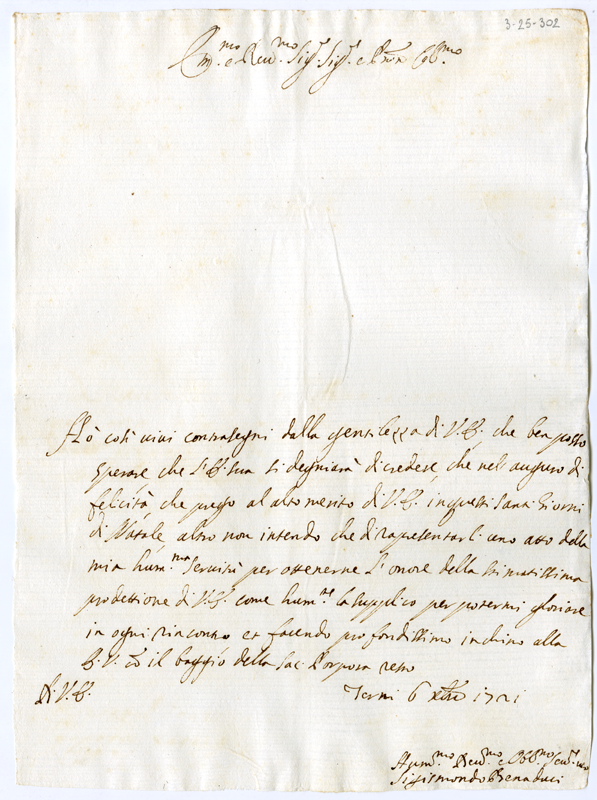 3-25-302
Em.mo e Reu.mo Sig.r Sig.r e Pron Col.mo
Hò così uiui contrasegni dalla gentilezza di V.E. che ben posso
sperare che l'E. sua si degniarà di credere, che nell'augurio di
felicità, che prego al alto merito di V.E. in questi santi Giorni
di Natale, altro non intendo che di rapresentarli uno atto della
mia hum.ma seruitù per ottenerne l'onore della stimatissima
protettione di V.E. come hum.te la supplico per potermi gloriare
in ogni rincontro et facendo profondissimo inchino alla
E.V. cō il baggio della Sac. Porpora resto
Di V.E.
Terni 6 xbre 1721
Hum.mo Deu.mo e Obb.mo Seru.re uro
Sigismondo Benaduci